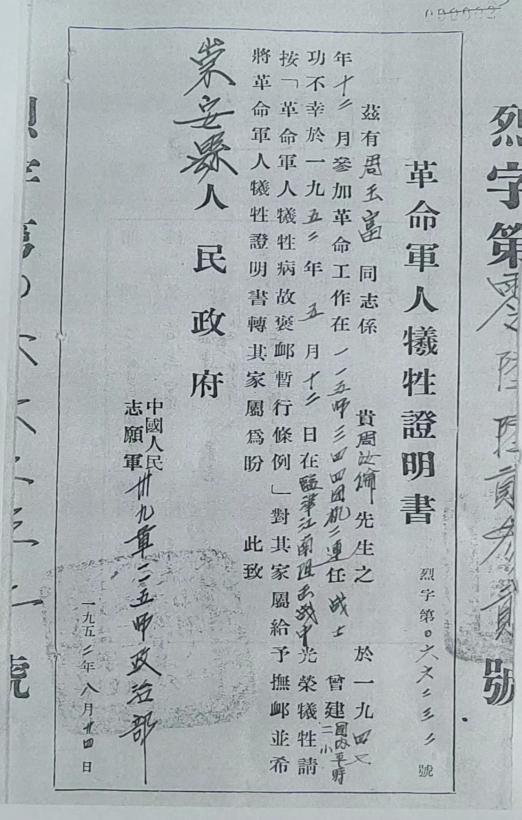 000652
烈字第零陸陸貳叁貳號
革命軍人犧牲證明書
烈字第0六六二三二號
茲有周玉富同志係 貴周汝倫先生之 於一九四七
年十二月參加革命工作在一一五师三四四团机二連任战士 曾建国内平時二小
功不幸於一九五二年五月十二日在臨津江南阻击战中光榮犧牲請
按「革命軍人犧牲病故褒邺暫行條例」對其家屬給予撫邺並希
將革命軍人犧牲證明書轉其家屬爲盼 此致
崇安縣人民政府
中國人民志願軍卅九軍一一五师政治部
一九五二年八月廿四日